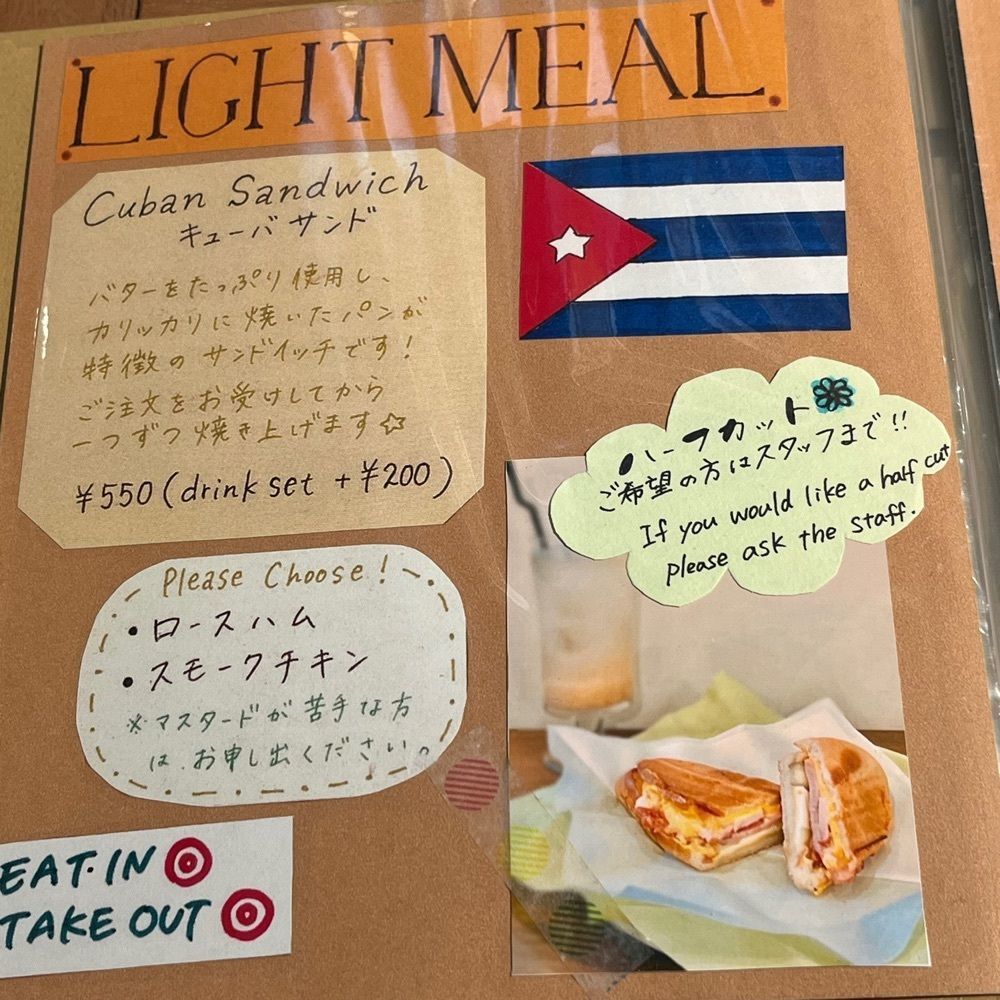 LIGHT MEAL
Cuban Sandwich
キューバサンド
バターをたっぷり使用し、
カリッカリに焼いたパンが
特徴のサンドイッチです!
ご注文をお受けしてから
一つずつ焼き上げます☆
¥550(drink set +¥200)
ハーフカット
ご希望の方はスタッフまで!!
If you would like a half cut
please ask the staff.
Please Choose!
・ロースハム
・スモークチキン
※マスタードが苦手な方
は、お申し出ください。
EAT・IN ◎
TAKE OUT ◎